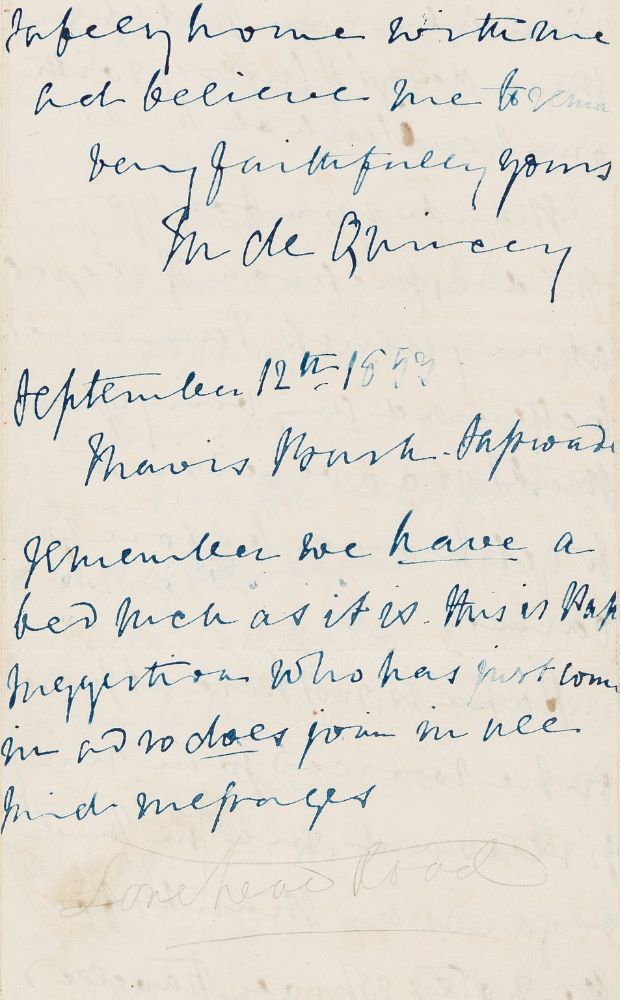 safely home with me
and believe me to rema
very faithfully yours
M de Quincey
September 12th 1853
Mavis Bush. Lasswade
remember we have a
bed such as it is. This is Pap
suggestion who has just come
in and so does join in all
kind messages
Lonehead Road